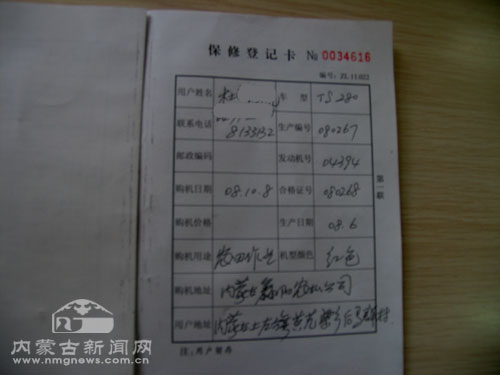 保修登记卡 № 0034616
编号: ZL.11.022
用户姓名 杜 车型 TS 280
联系电话 8133132 生产编号 080267
邮政编码 发动机号 04394
购机日期 08.10.8 合格证号 080268
购机价格 生产日期 08.6
购机用途 农田作业 机型颜色 红色
购机地址 内蒙古 农机公司
用户地址 内蒙古土右旗 黄花 乡后 村
注:用户留存
第一联
内蒙古新闻网
WWW.NMGNEWS.COM.CN